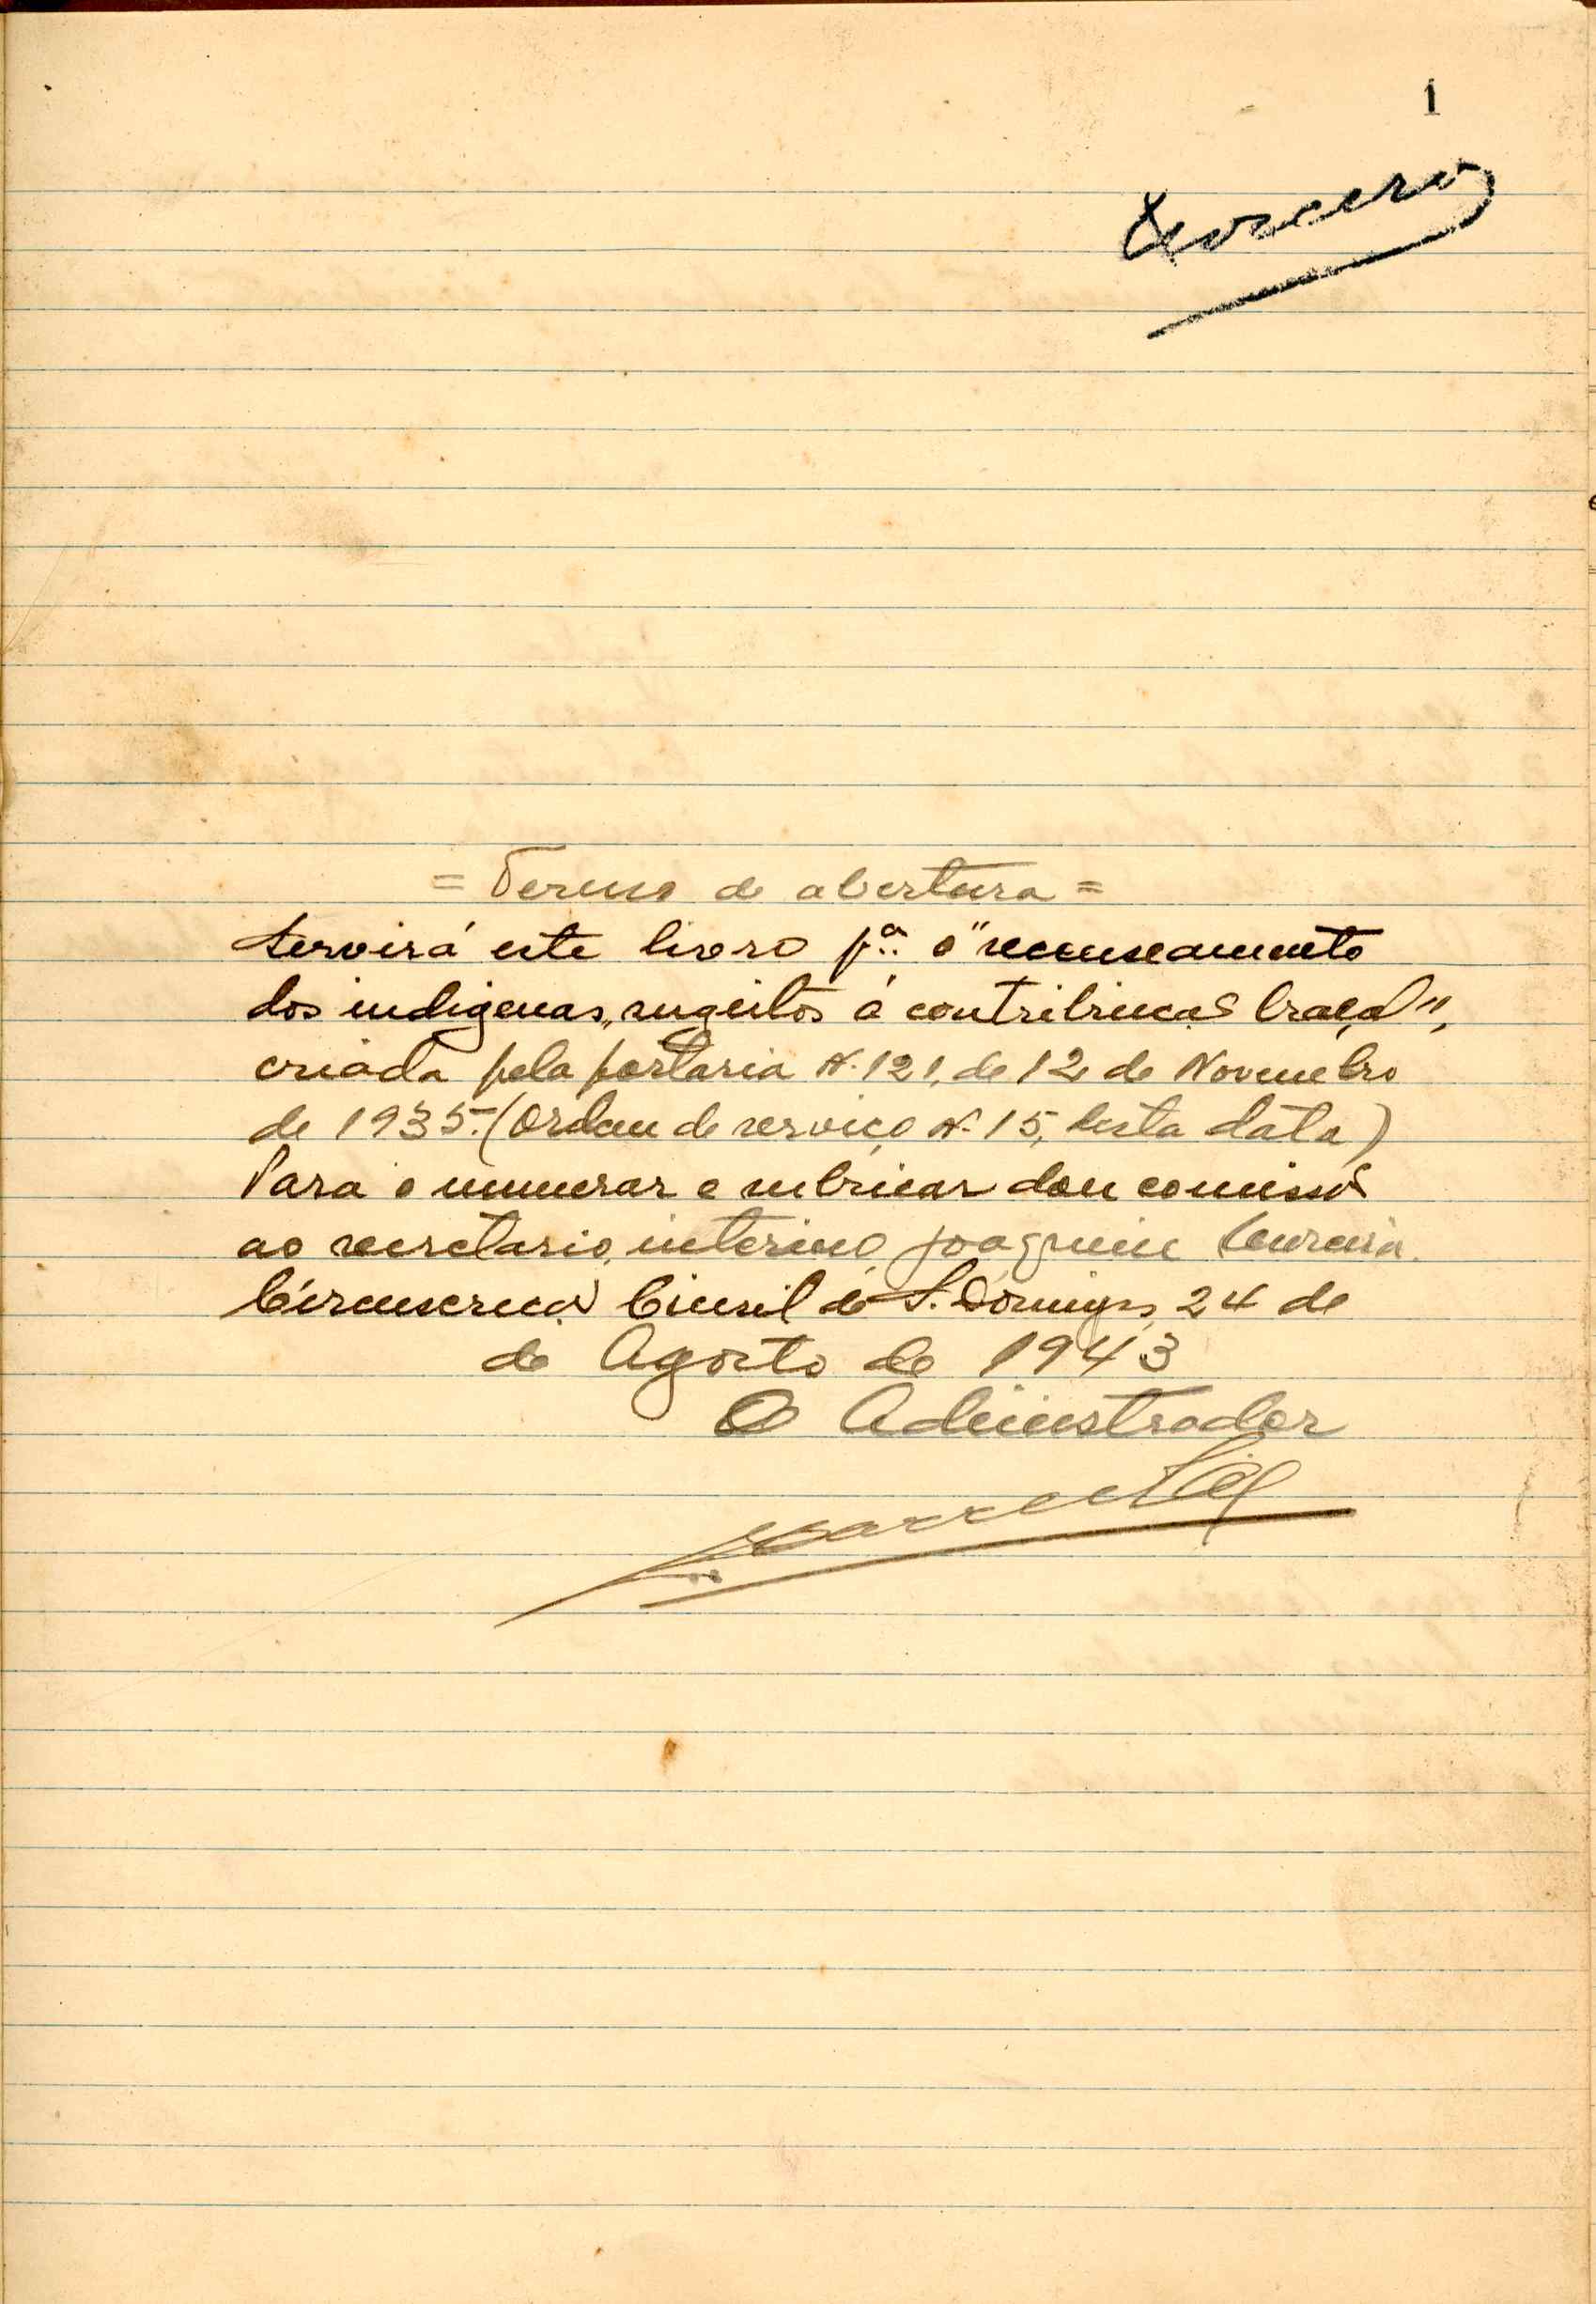 1
= Termo de abertura =
Servirá este livro pª o "recenseamento
dos indigenas, sugeitos á contribuição braçal",
criada pela portaria Nº 121, de 12 de Novembro
de 1935. (Ordem de serviço Nº 15, desta data)
Para o numerar e rubricar dou comissão
ao secretario, interino, Joaquim
Circunscrição Civil de S. Domingos, 24 de
de Agosto de 1943
O Administrador